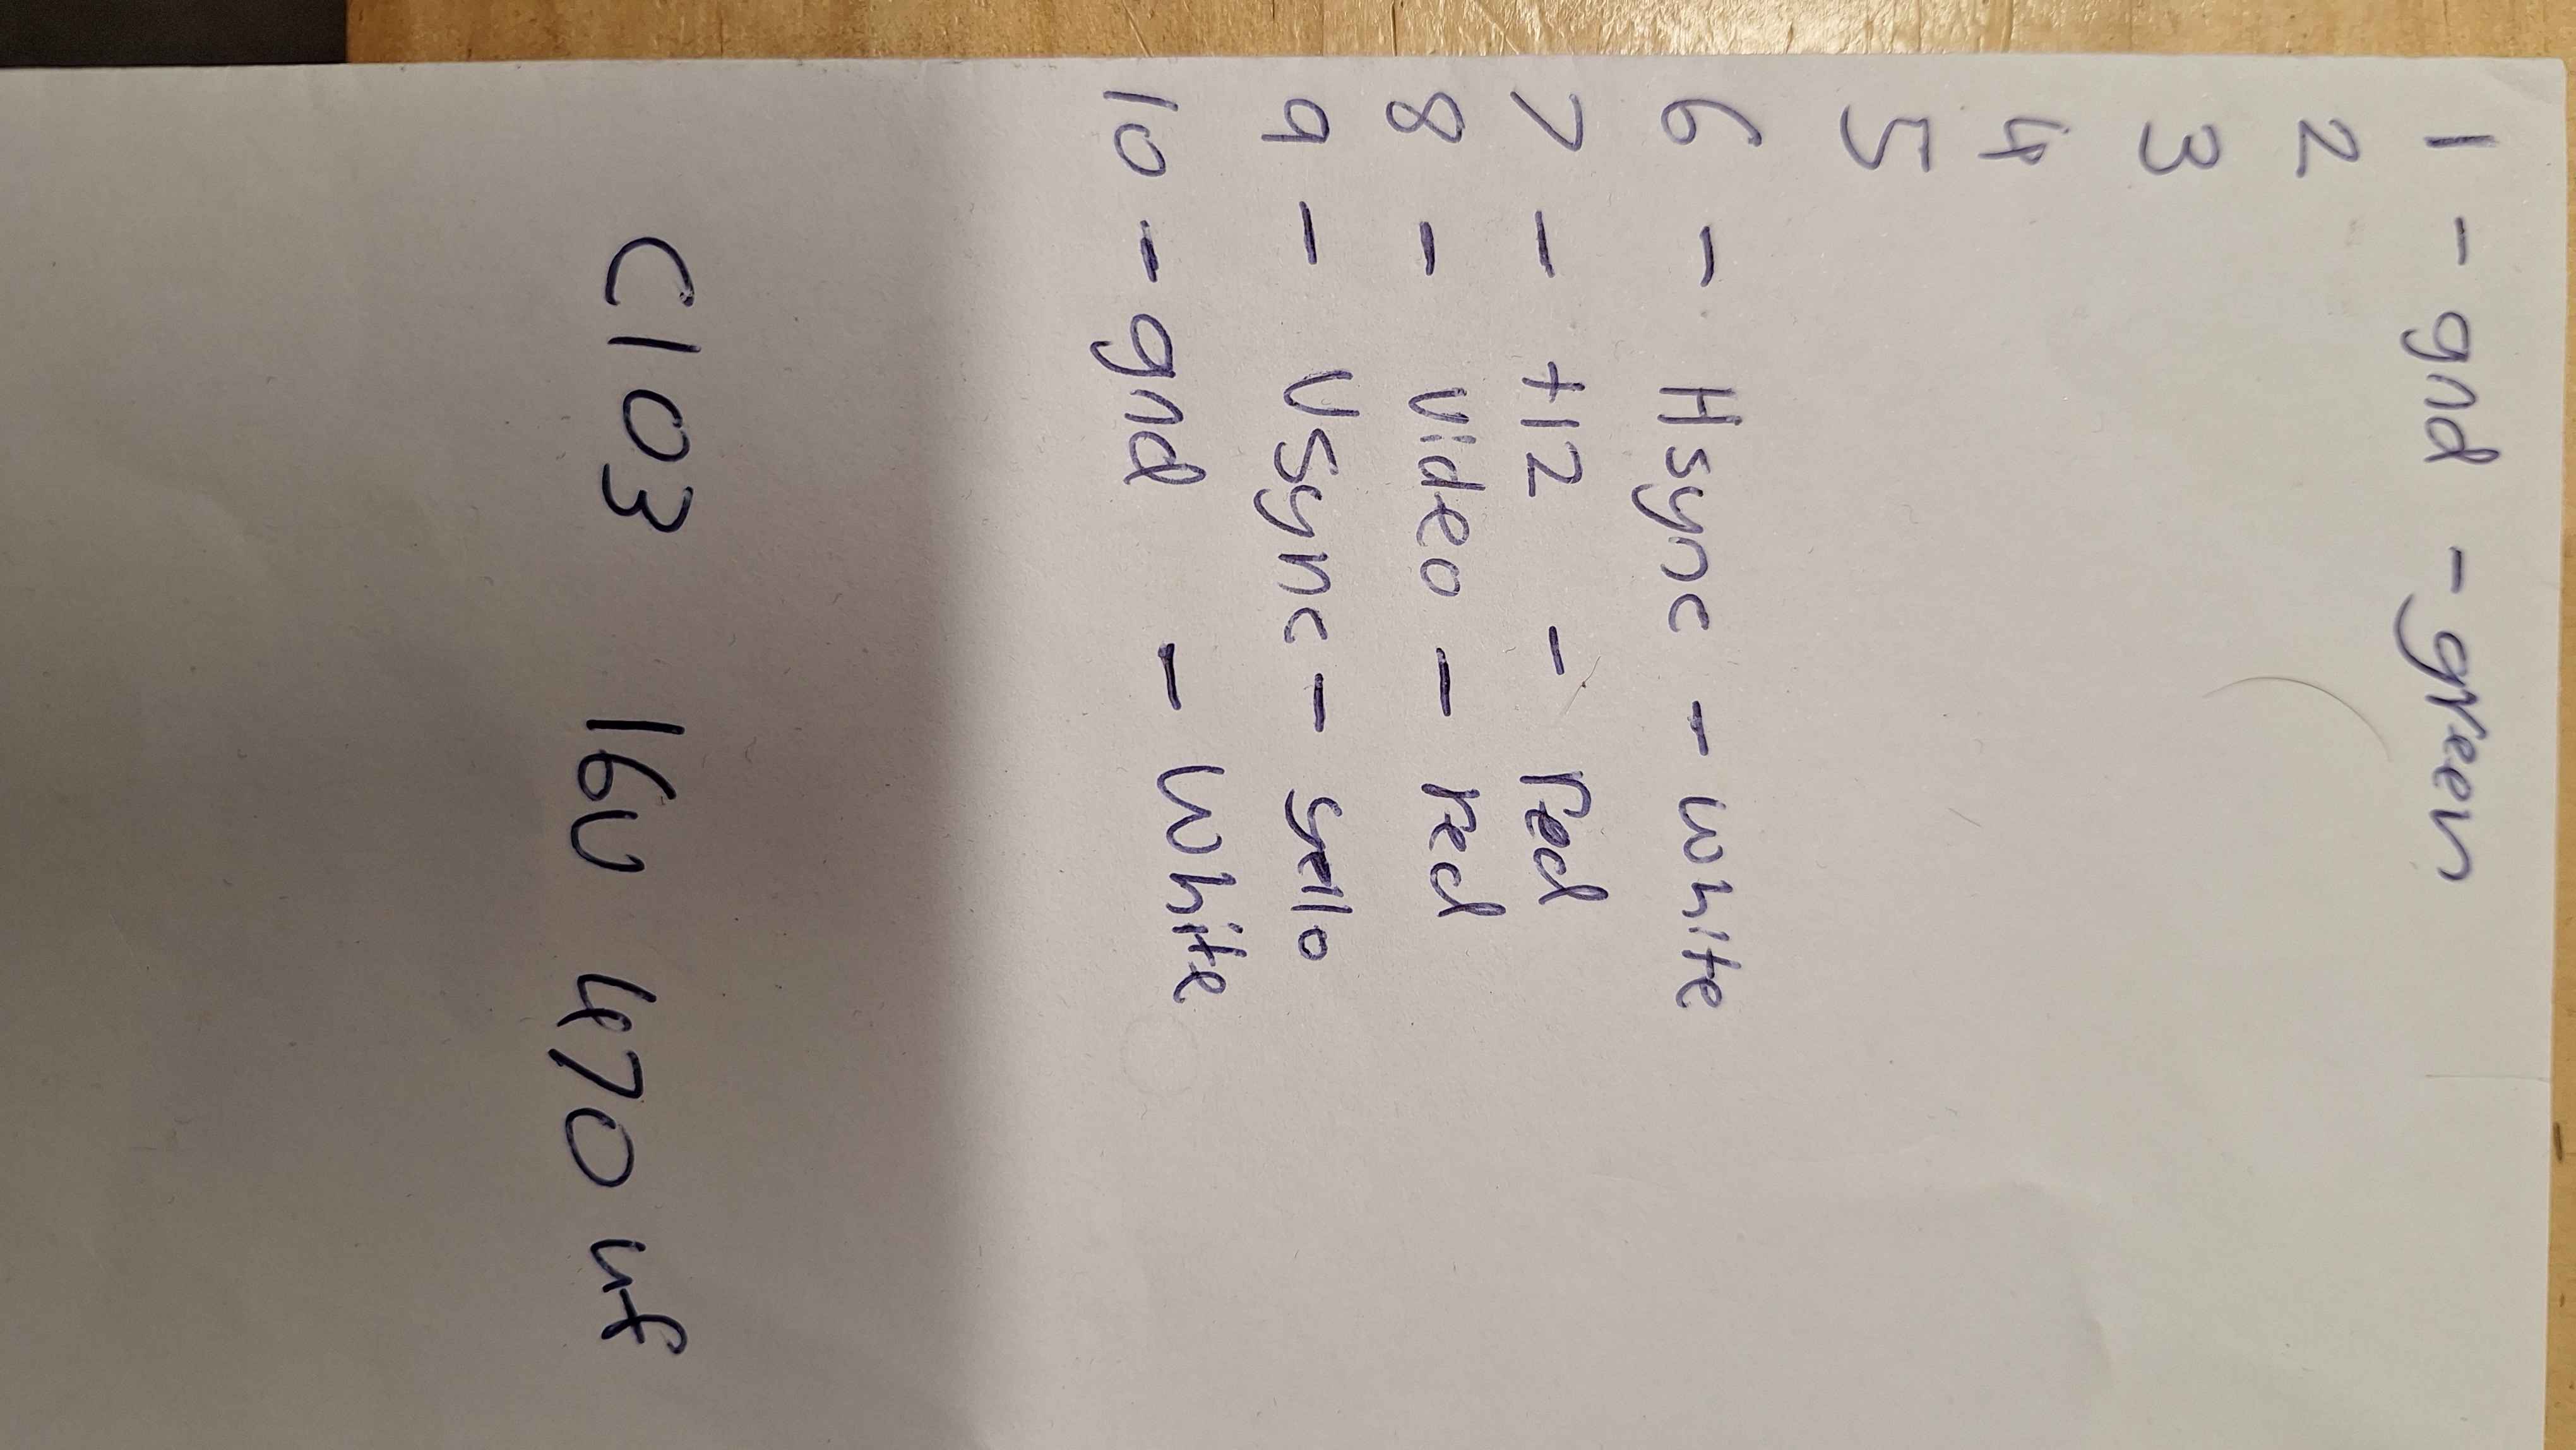 1 - gnd - green
2
3
4
5
6 - Hsync - white
7 - +12 - red
8 - Video - red
9 - Vsync - yello
10 - gnd - White
C103 16V 470 uf